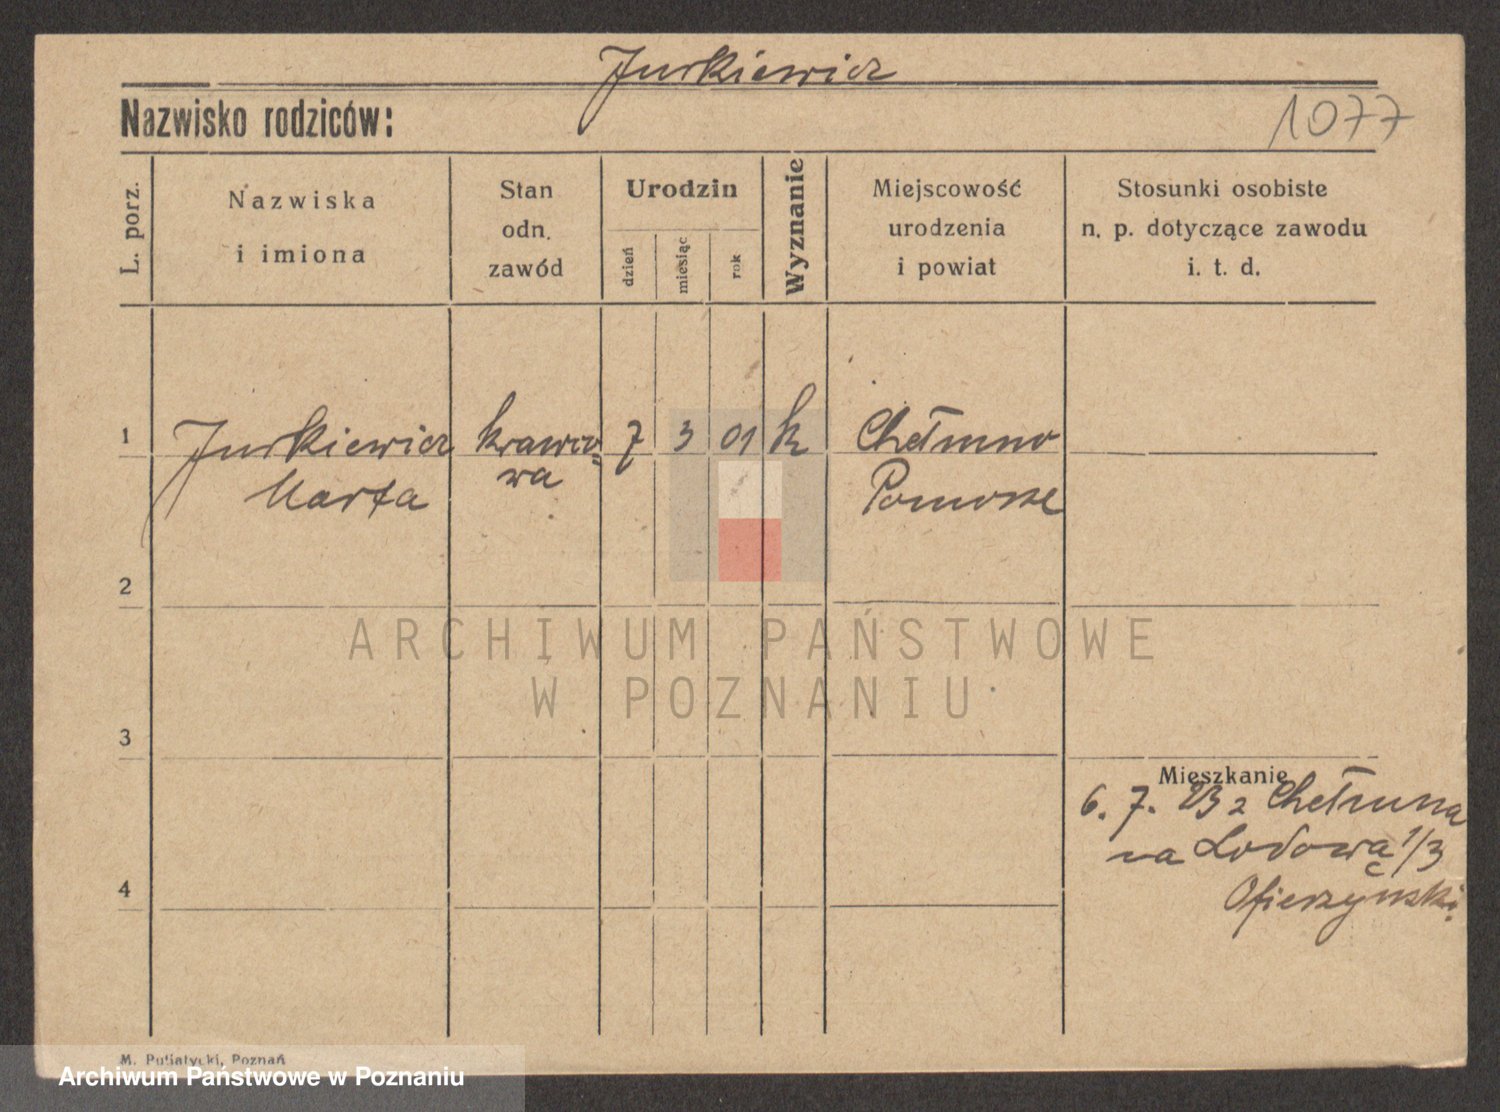 Jurkiewicz
Nazwisko rodziców:
1077
L. porz.
Nazwiska
i imiona
Stan
odn.
zawód
Urodzin
dzień
miesiąc
rok
Wyznanie
Miejscowość
urodzenia
i powiat
Stosunki osobiste
n. p. dotyczące zawodu
i. t. d.
1
Jurkiewicz
Marta
krawco-
wa
7
3
01
k
Chełmno
Pomorze
2
ARCHIWUM PAŃSTWOWE
W POZNANIU
3
Mieszkanie
6. 7. 23 z Chełmna
na Lodową 1/3
Ofierzyński
4
M. Putiatycki, Poznań
Archiwum Państwowe w Poznaniu